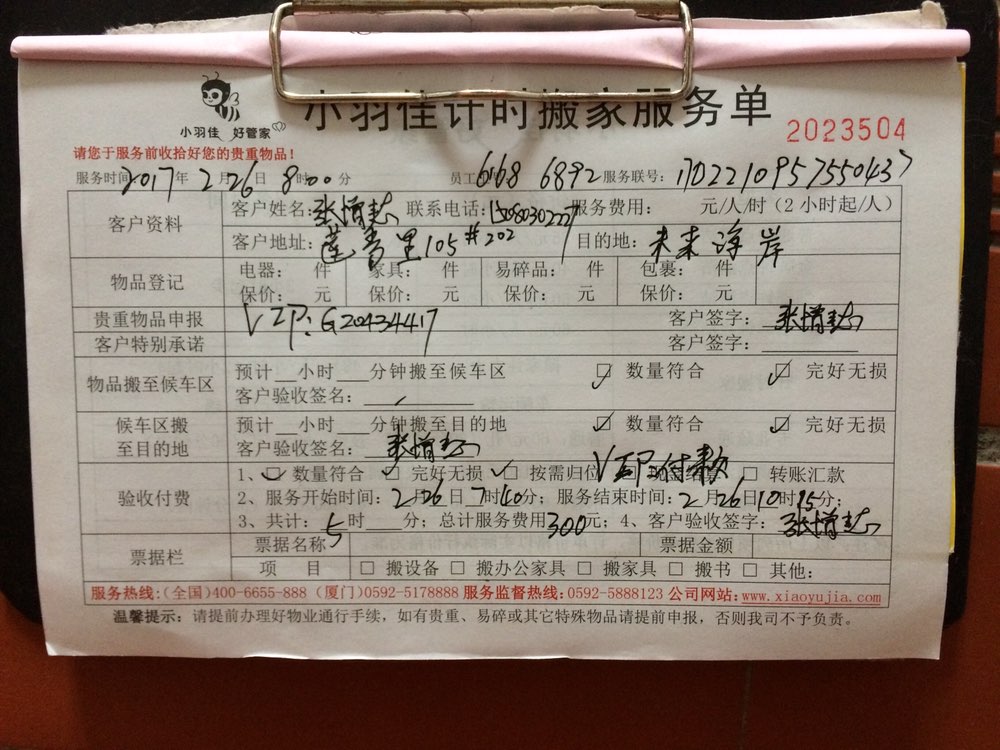 小羽佳计时搬家服务单
小羽佳 好管家
2023504
请您于服务前收拾好您的贵重物品！
服务时间 2017年2月26日8时00分 员工 668 6892 服务联号：170221095755043
客户资料 客户姓名：张增志 联系电话：15080302227 服务费用： 元/人/时（2小时起/人）
客户地址：莲青里105#202 目的地：未来海岸
物品登记 电器： 件 家具： 件 易碎品： 件 包裹： 件
保价： 元 保价： 元 保价： 元 保价： 元
贵重物品申报 VIP：G20434417 客户签字：张增志
客户特别承诺 客户签字：
物品搬至候车区 预计__小时___分钟搬至候车区 ☑ 数量符合 ☑ 完好无损
客户验收签名：
候车区搬至目的地 预计__小时___分钟搬至目的地 ☑ 数量符合 ☑ 完好无损
客户验收签名：张增志
验收付费 1、☑ 数量符合 ☑ 完好无损 ☑ 按需归位 VIP付款 现场结款 ☐ 转账汇款
2、服务开始时间：2月26日7时40分；服务结束时间：2月26日10时15分；
3、共计：5时___分；总计服务费用300元；4、客户验收签字：张增志
票据栏 票据名称 票据金额
项 目 ☐ 搬设备 ☐ 搬办公家具 ☐ 搬家具 ☐ 搬书 ☐ 其他：
服务热线：(全国)400-6655-888 (厦门)0592-5178888 服务监督热线：0592-5888123 公司网站：www.xiaoyujia.com
温馨提示：请提前办理好物业通行手续，如有贵重、易碎或其它特殊物品请提前申报，否则我司不予负责。